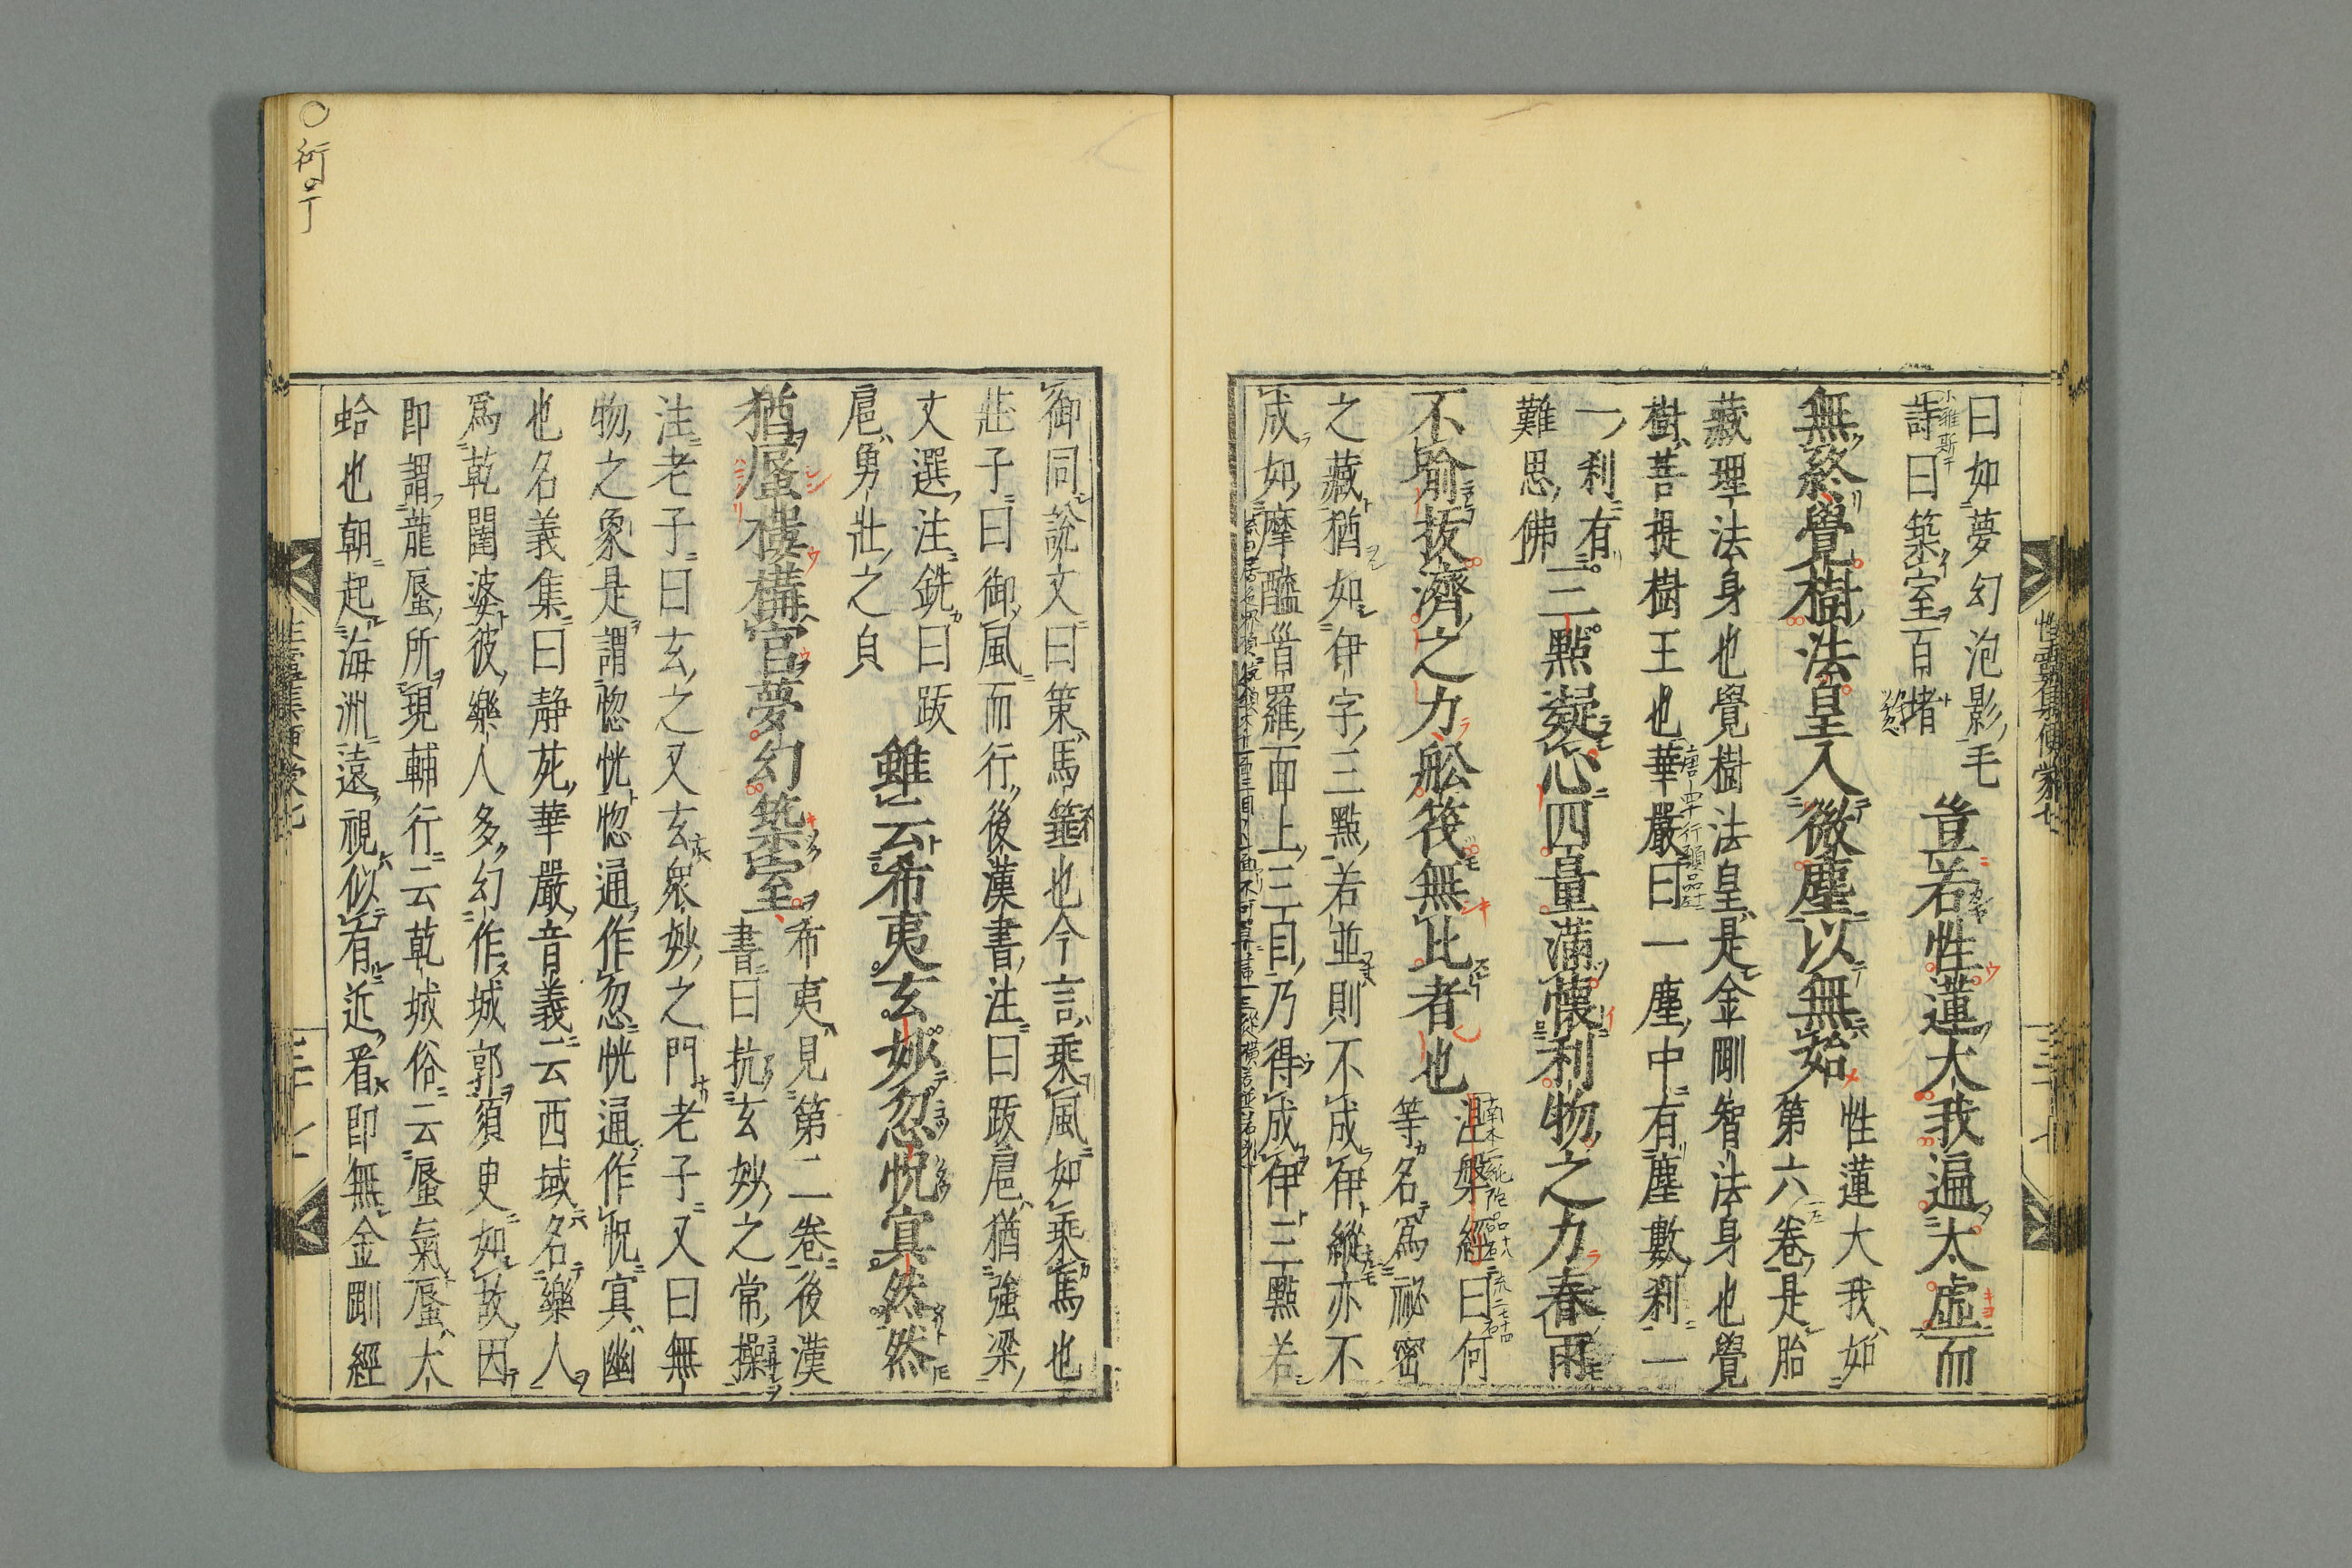 御同說文曰策馬箠也今言乘風如乘馬也
莊子曰御風而行後漢書注曰跋扈猶強梁
文選注銑曰跋
扈勇壯之皃
雖云希夷玄妙忽怳寘然然
猶蜃樓構官夢幻築室
希夷見第二卷後漢
書曰抗玄妙之常操
注老子曰玄之又玄衆妙之門老子又曰無
物之象是謂惚恍惚通作忽恍通作怳寘幽
也名義集曰靜苑華嚴音義云西域名樂人
爲乾闥婆彼樂人多幻作城郭須臾如故因
即謂龍蜃所現輔行云乾城俗云蜃氣蜃大
蛤也朝起海洲遠視似有近看即無金剛經
曰如夢幻泡影毛
詩曰築室百堵
豈若性蓮大我遍太虛而
無終覺樹法皇入微塵以無始
性蓮大我如
第六卷是胎
藏理法身也覺樹法皇是金剛智法身也覺
樹菩提樹王也華嚴曰一塵中有塵數刹一
一刹有
難思佛
三點凝心四量滿懷利物之力春雨
不喻拔濟之力舩筏無比者也
涅槃經曰何
等名爲祕密
之藏猶如伊字三點若並則不成伊縱亦不
成如摩醯首羅面上三目乃得成伊三點若
性靈集便蒙七